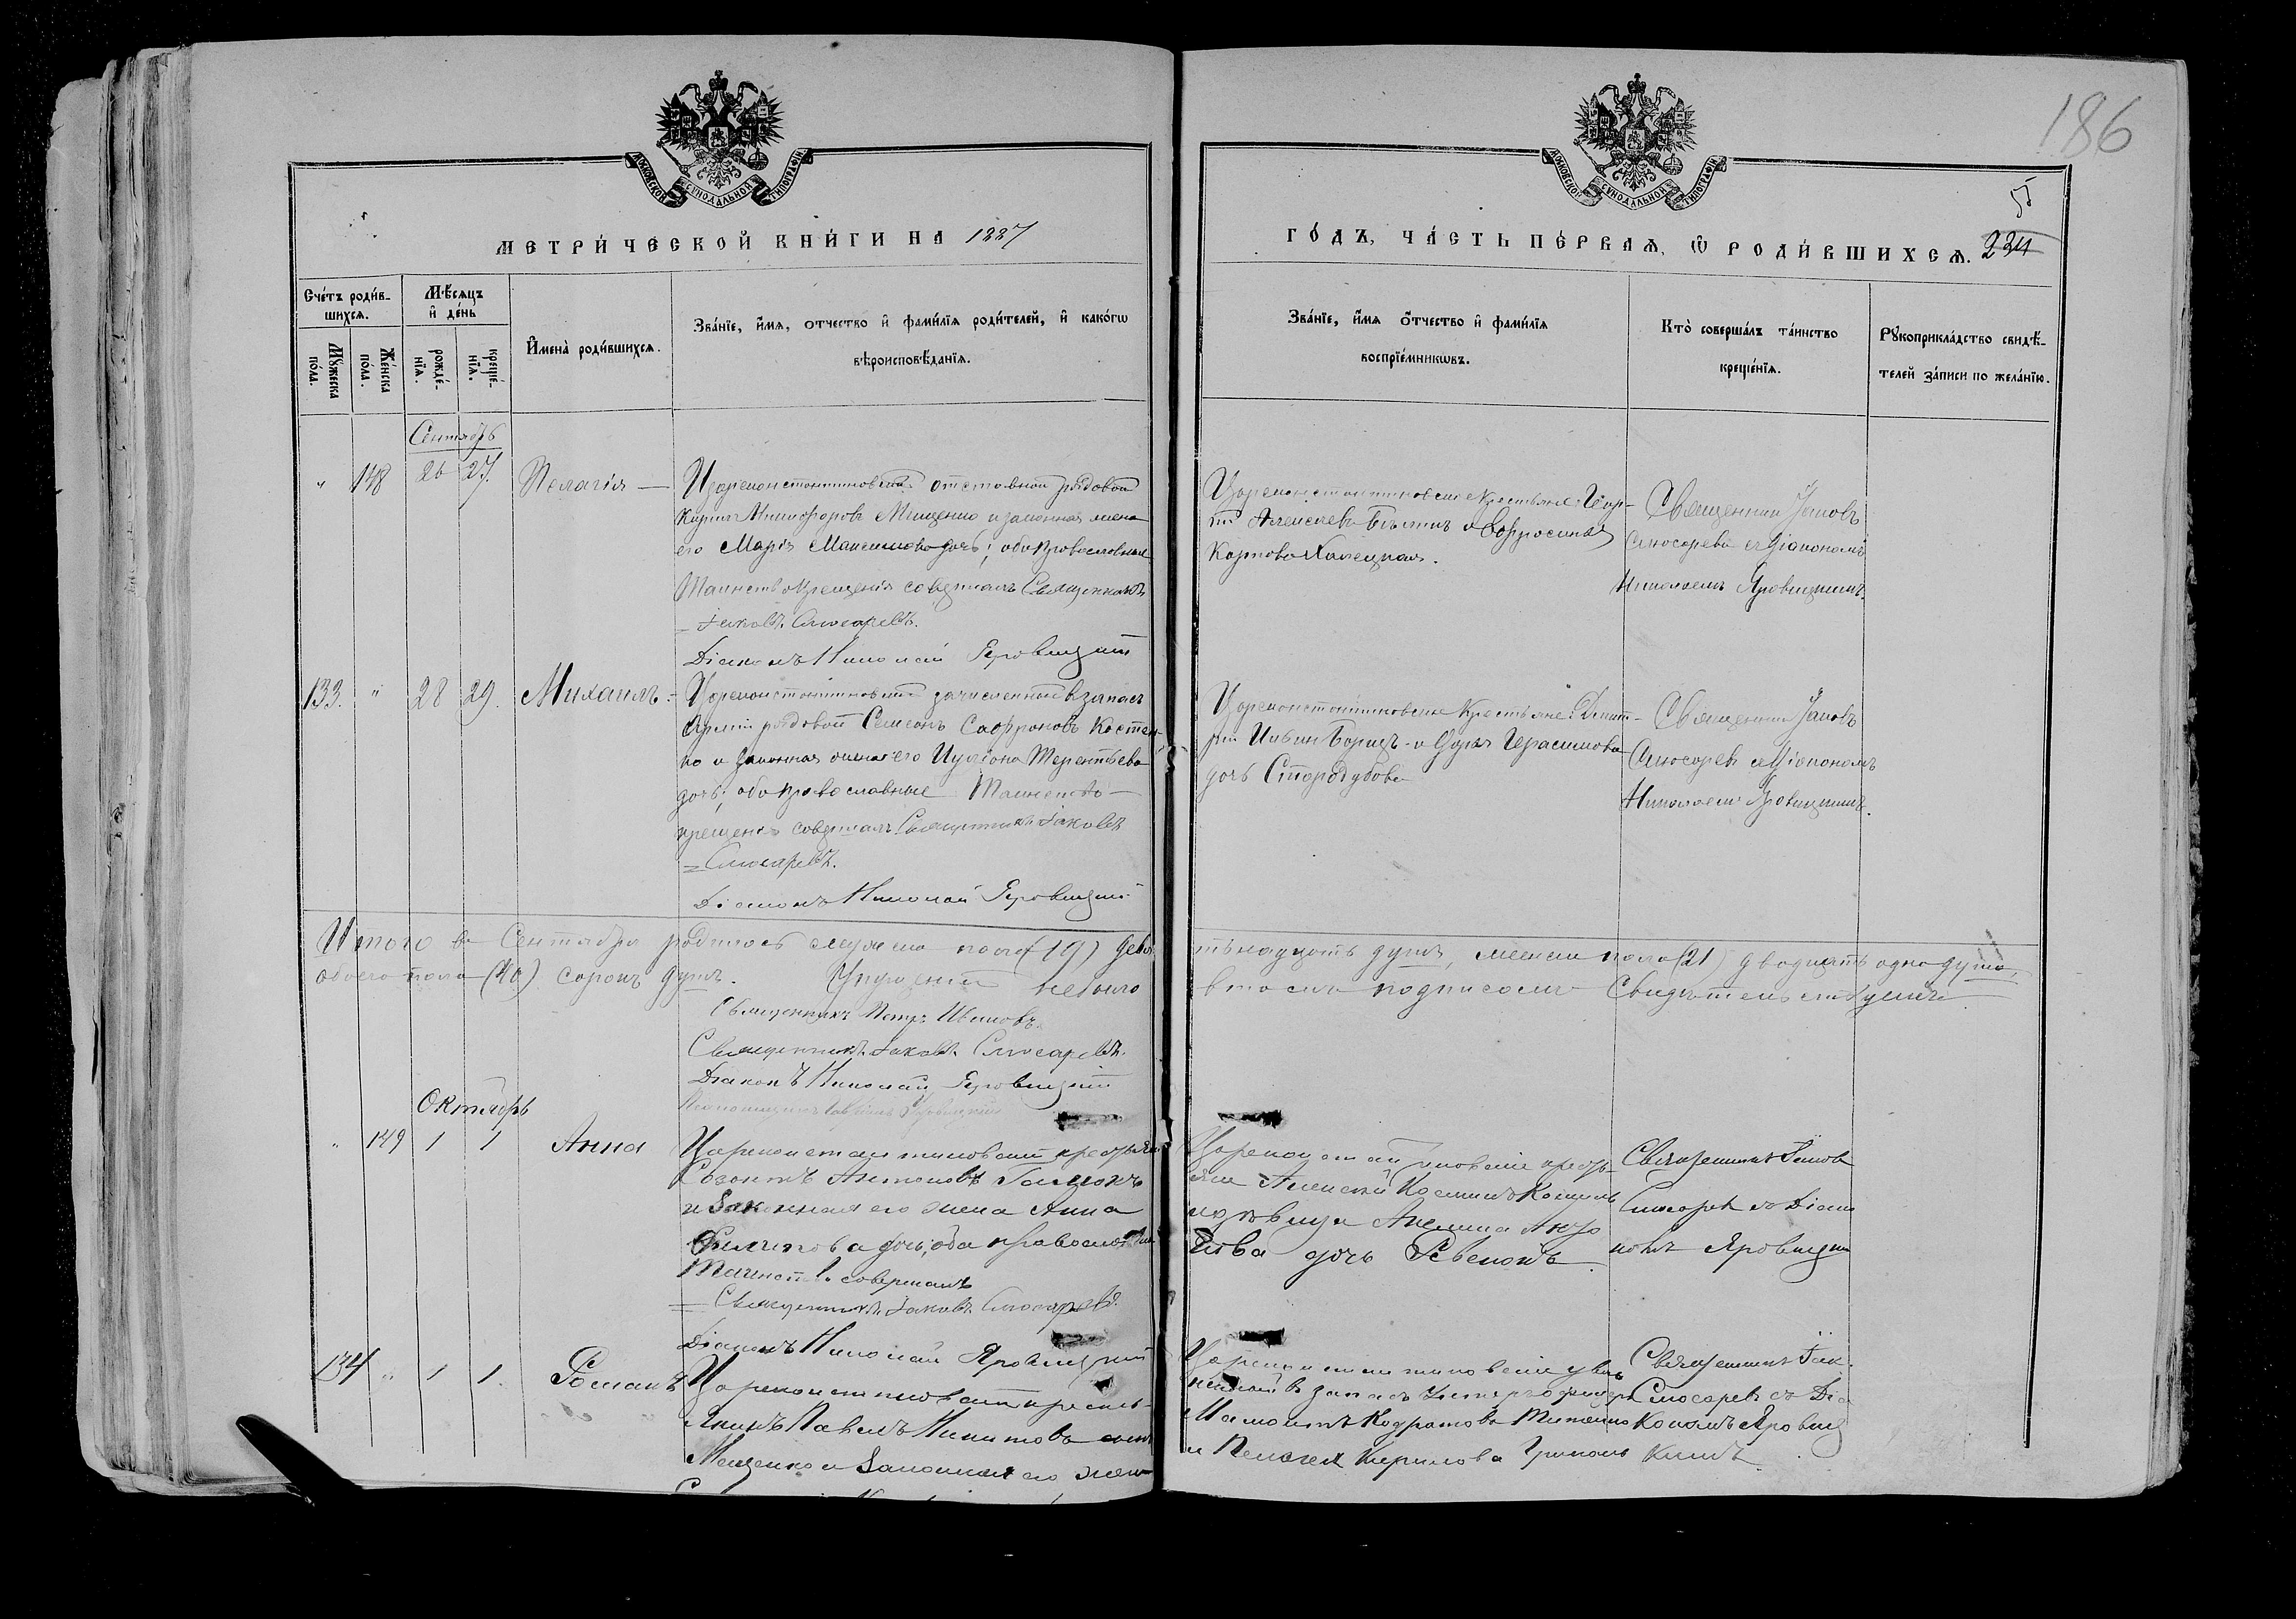 186
55
МОСКОВСКОЙ СѴНОДАЛЬНОЙ ТИПОГРАФІИ
МОСКОВСКОЙ СѴНОДАЛЬНОЙ ТИПОГРАФІИ
МЕТРИ́ЧЕСКОЙ КНИ́ГИ НА 1887
ГО́ДЪ, ЧА́СТЬ ПЕ́РВАЯ, Ѡ РОДИ́ВШИХСЯ. 234
Сче́тъ роди́в-
шихся.
Мѣ́сяцъ
и҆ де́нь
Мꙋ́жеска
по́ла.
Же́нска
по́ла.
рожде́-
нїѧ.
креще́-
нїѧ.
И҆мена̀ роди́вшихся.
Зва́нїе, и҆́мѧ, ѻ҆́тчество и҆ фами́лїѧ роди́телей, и҆ како́гѡ
вѣроисповѣ́данїѧ.
Зва́нїе, и҆́мѧ ѻ҆́тчество и҆ фами́лїѧ
воспрїе́мникѡвъ.
Кто̀ соверша́лъ та́инство
креще́нїѧ.
Рꙋкоприкла́дство свидѣ́-
телей за́писи по жела́нїю.
Сентябрь
" 148 26 27. Пелагія —
Цареконстантиновскій отставной рядовой
Кирилъ Никифоровъ Мищенко и законная жена
его Марія Максимова дочь; оба православные
Таинство Крещенія совершалъ Священникъ
= Іаковъ Слюсаревъ.
Діаконъ Николай Яровицкій
Цареконстантиновские Крестьяне: Геор-
гій Алексеевъ и Евфросинія
Карпова
Священникъ Іаковъ
Слюсаревъ съ Діакономъ
Николаемъ Яровицкимъ.
133. " 28 29. Михаилъ —
Цареконстантиновскій зачисленный в запасъ
Арміи рядовой Симеонъ Сафроновъ Костен-
ко и законная жена его Иуліона Терентьева
дочь; оба православные Таинство
крещенія совершалъ Священникъ Іаковъ
= Слюсаревъ.
Діаконъ Николай Яровицкій
Цареконстантиновские Крестьяне: Димит-
рій Ильинъ и Дарія Герасимова
дочь Стародубова
Священникъ Іаковъ
Слюсаревъ съ Діакономъ
Николаемъ Яровицкимъ.
Итого въ Сентябре родилось мужеска пола (19) девят-
надцать душъ, женска пола (21) двадцать одна душа,
обоего пола (40) сорокъ душъ. Упущеній не было
в томъ подписомъ Свидетельствуемъ.
Священникъ Петръ Ивановъ.
Священникъ Іаковъ Слюсаревъ.
Діаконъ Николай Яровицкій
Октябрь
" 149 1 1 Анна
Цареконстантиновскій крестьян
Созонтъ Антоновъ
и Законная его жена Анна
Филипова дочь, оба православные
Таинство совершалъ
= Священникъ Іаковъ Слюсаревъ.
Діаконъ Николай Яровицкій
Цареконстантиновские кресть-
яне Алексей Косминъ
и девица Акелина
дочь Ревенокъ.
Священникъ Іаков
Слюсаревъ съ Діако
номъ Яровицким
134 " 1 1. Романъ
Цареконстантиновскій кресть-
янинъ Павелъ Никитовъ сынъ
Мещенко и Законная его жена
в запасъ Унтеръ офицеръ
Кодратовъ Титенко
и Пелагея Кирилова
Священникъ Іак.
Слюсаревъ съ Діа
кономъ Яровиц
кимъ.